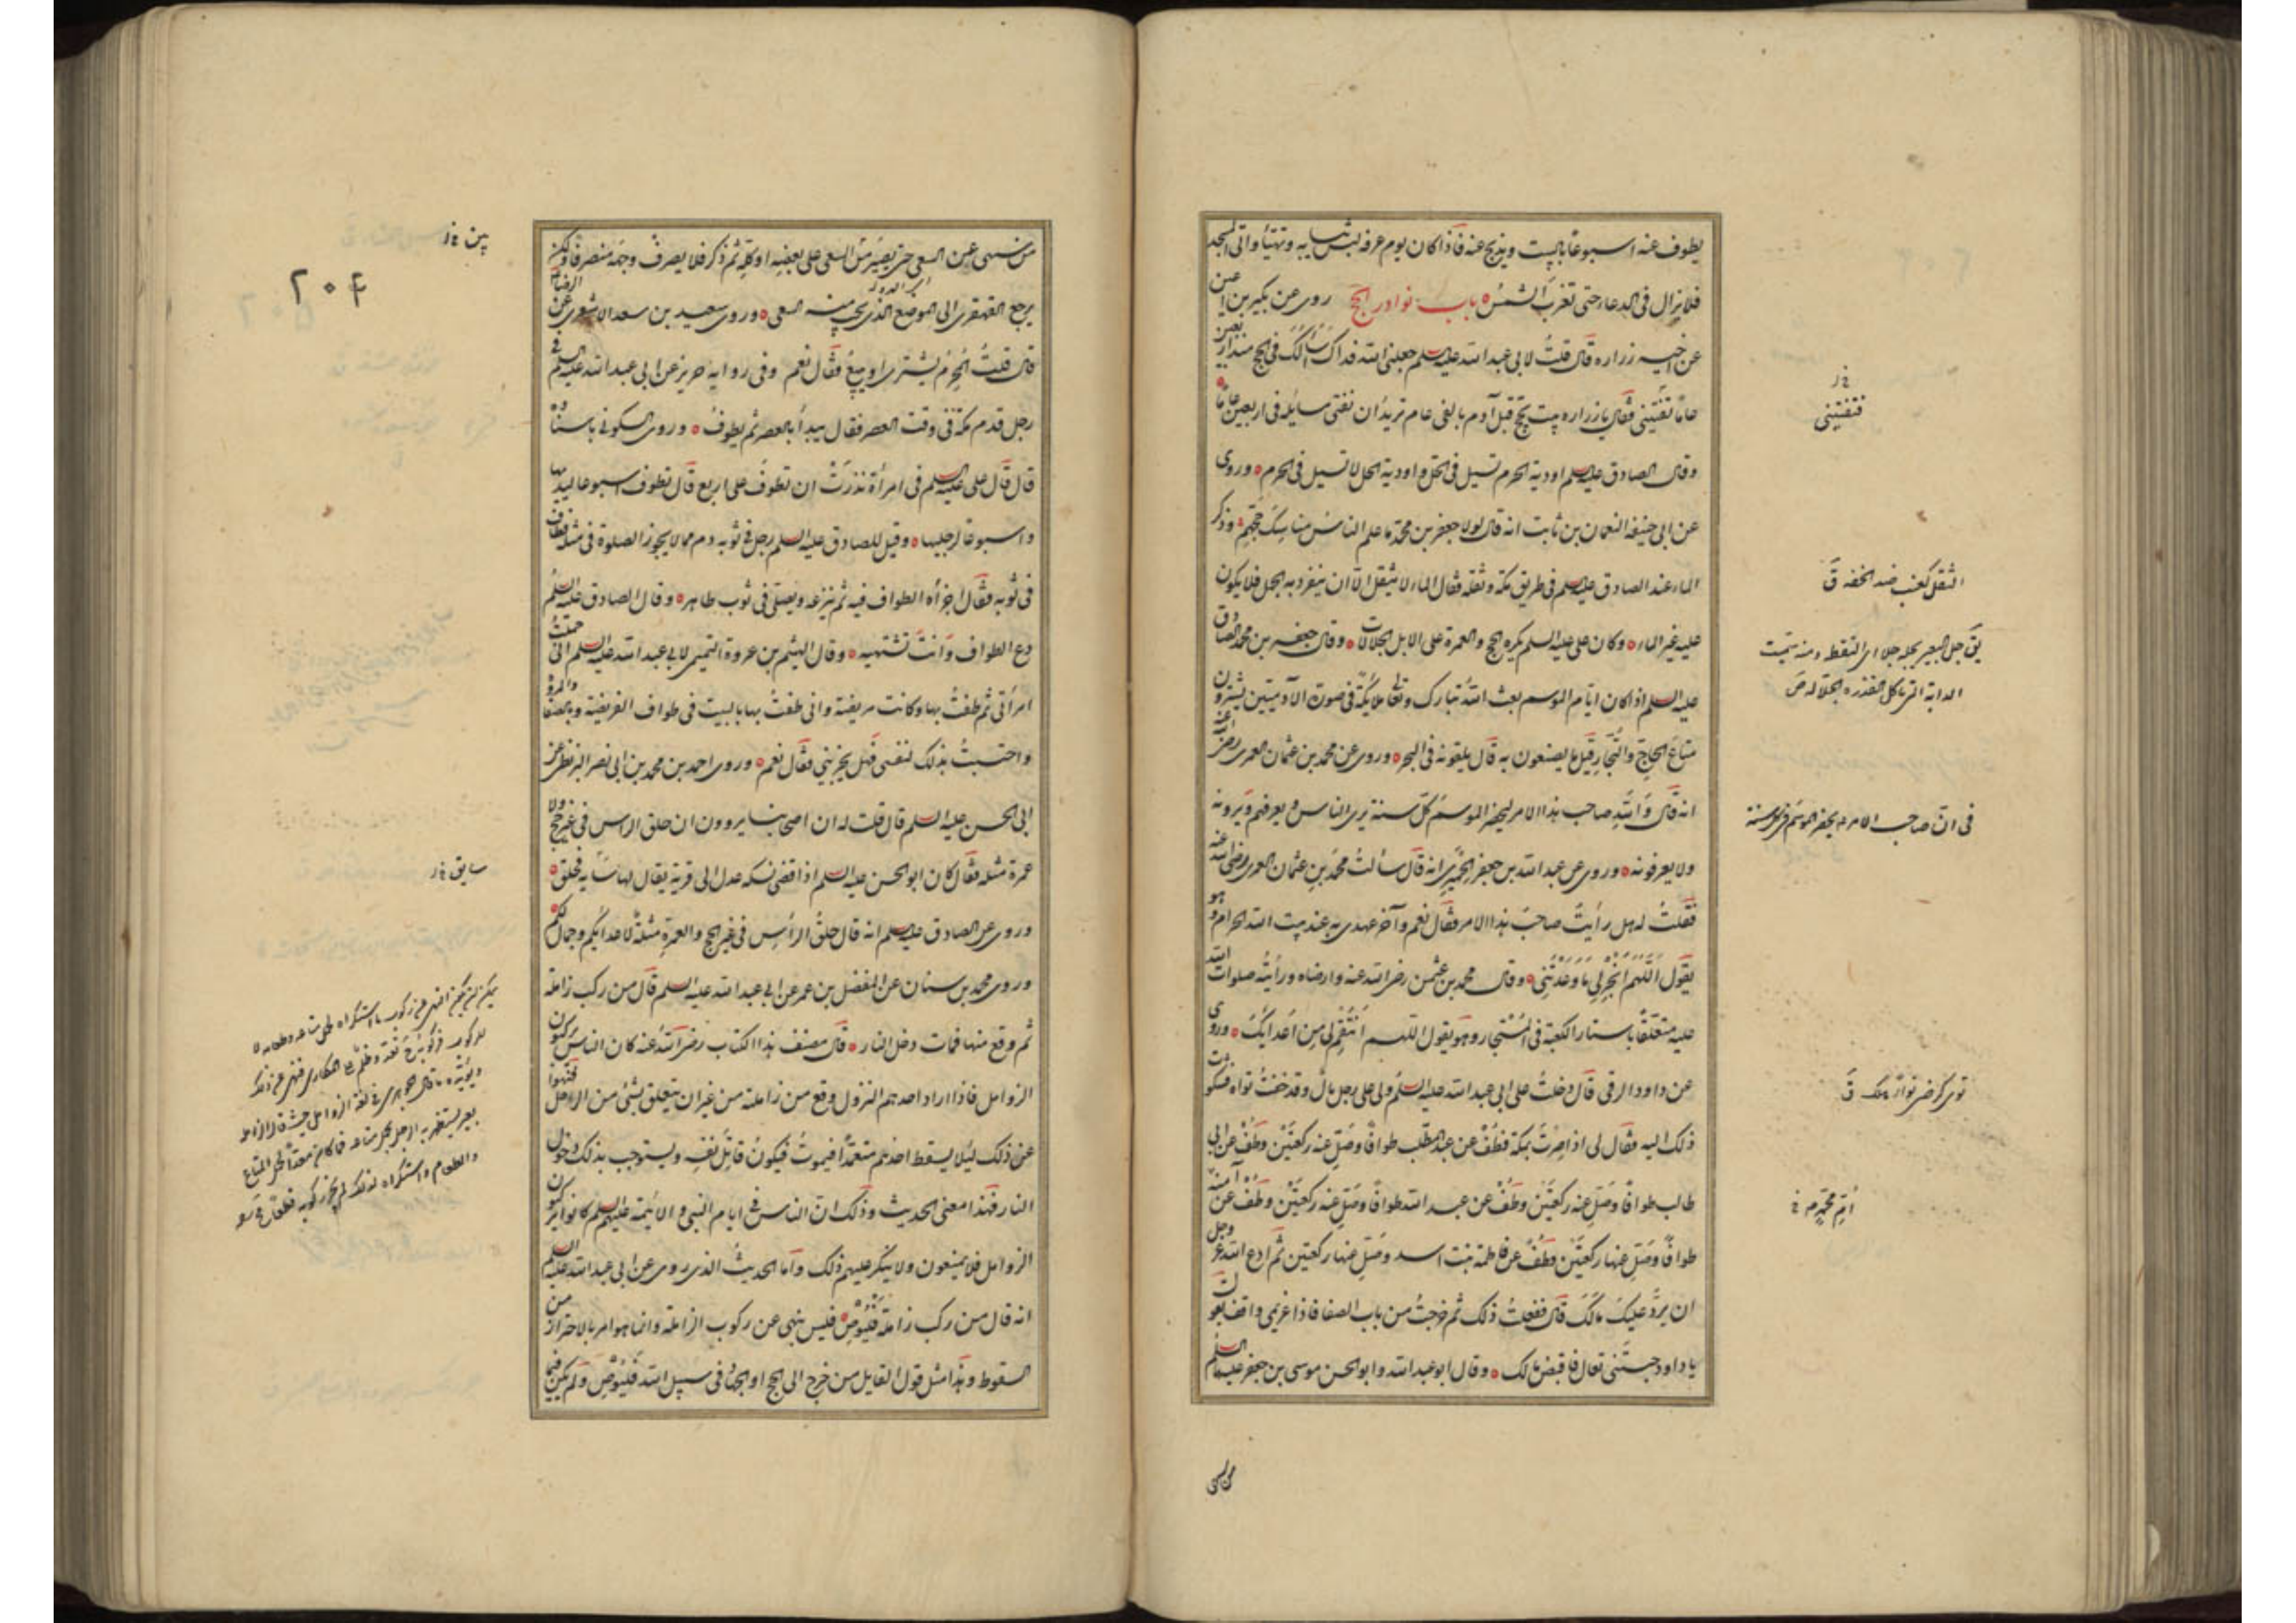 يطوف عنه اسبوعا بالبيت ويذبح عنه فاذا كان يوم عرفه لبس ثيابه وتهيأ واتى المسجد
فلا يزال فى الدعاء حتى تغرب الشمس باب نوادر الحج روى عن بكير بن اعين
عن اخيه زراره قال قلت لابى عبد الله عليه السلم جعلنى الله فداك اسألك فى الحج منذ اربعين
عاما فتفتينى فقال يا زراره بيت يحج قبل آدم بالفى عام تريد ان تفتى مسائله فى اربعين عاما
وقال الصادق عليه السلم اودية الحرم تسيل فى الحل واودية الحل لا تسيل فى الحرم وروى
عن ابى حنيفه النعمان بن ثابت انه قال لولا جعفر بن محمد ما علم الناس مناسك حجهم وذكر
الماء عند الصادق عليه السلم فى طريق مكة وثقله فقال الماء لا يثقل الا ان ينفرد به الجمل فلا يكون
عليه غير الماء وكان على عليه السلم يكره الحج والعمرة على الابل الجلالات وقال جعفر بن محمد الصادق
عليه السلم اذا كان ايام الموسم بعث الله تبارك وتعالى ملايكة فى صورة الآدميين يشترون
متاع الحاج والتجار قيل ما يصنعون به قال يلقونه فى البحر وروى عن محمد بن عثمان العمرى رضى الله عنه
انه قال والله صاحب هذا الامر ليحضر الموسم كل سنة يرى الناس ويعرفهم ويرونه
ولا يعرفونه وروى عن عبد الله بن جعفر الحميرى انه قال سألت محمد بن عثمان العمرى رضى الله عنه
فقلت له هل رأيت صاحب هذا الامر فقال نعم وآخر عهدى به عند بيت الله الحرام وهو
يقول اللهم انجز لى ما وعدتنى وقال محمد بن عثمن رضى الله عنه وارضاه ورأيته صلوات الله
عليه متعلقا باستار الكعبة فى المستجار وهو يقول اللهم انتقم لى من اعدائك وروى
عن داود الرقى قال دخلت على ابى عبد الله عليه السلم ولى على رجل مال وقد خفت تواه فشكوت
ذلك اليه فقال لى اذا صرت بمكة فطف عن عبد المطلب طوافا وصل عنه ركعتين وطف عن ابى
طالب طوافا وصل عنه ركعتين وطف عن عبد الله طوافا وصل عنه ركعتين وطف عن آمنة
طوافا وصل عنها ركعتين وطف عن فاطمة بنت اسد وصل عنها ركعتين ثم ادع الله عز وجل
ان يرد عليك مالك قال ففعلت ذلك ثم خرجت من باب الصفا فاذا غريمى واقف يقول
يا داود حبستنى تعال فاقبض مالك وقال ابو عبد الله وابو الحسن موسى بن جعفر عليهما السلم
خ ل
فتفتينى
الثقل كعنب ضد الخفه ق
فى ان صاحب الامر يحضر الموسم فى كل سنة
من سهى عن السعى حتى يصير من السعى على بعضه او كله ثم ذكر فلا يصرف وجهه منصرفا ولكن
يرجع القهقرى الى الموضع الذى يجب منه السعى وروى سعيد بن سعد الاشعرى عن الرضا
قال قلت المحرم يشترى او يبيع فقال نعم وفى رواية حريز عن ابى عبد الله عليه السلم فى
رجل قدم مكة فى وقت العصر فقال يبدأ بالعصر ثم يطوف وروى السكونى باسناده
قال قال على عليه السلم فى امرأة نذرت ان تطوف على اربع قال تطوف اسبوعا ليديها
واسبوعا لرجليها وقيل للصادق عليه السلم رجل فى ثوبه دم مما لا يجوز الصلوة فى مثله فطاف
فى ثوبه فقال اجزأه الطواف فيه ثم ينزعه ويصلى فى ثوب طاهر وقال الصادق عليه السلم
دع الطواف وانت تشتهيه وقال الهيثم بن عروة التميمى لابى عبد الله عليه السلم انى حملت
امرأتى ثم طفت بها وكانت مريضة وانى طفت بها بالبيت فى طواف الفريضة وبالصفا والمروة
واحتسبت بذلك لنفسى فهل يجزينى فقال نعم وروى احمد بن محمد بن ابى نصر البزنطى عن
ابى الحسن عليه السلم قال قلت له ان اصحابنا يروون ان حلق الراس فى غير حج ولا
عمرة مثله فقال كان ابو الحسن عليه السلم اذا قضى نسكه عدل الى قرية يقال لها سايه فحلق
وروى عن الصادق عليه السلم انه قال حلق الرأس فى غير الحج والعمرة مثلة لاعدائكم وجمال لكم
وروى محمد بن سنان عن المفضل بن عمر عن ابى عبد الله عليه السلم قال من ركب زاملة
ثم وقع منها فمات دخل النار قال مصنف هذا الكتاب رضى الله عنه كان الناس يركبون
الزوامل فاذا اراد احدهم النزول وقع من زاملته من غير ان يتعلق بشئ من الرحل فنهوا
عن ذلك ليلا يسقط احدهم متعمدا فيموت فيكون قاتل نفسه ويستوجب بذلك دخول
النار فهذا معنى الحديث وذلك ان الناس فى ايام النبى والائمة عليهم السلم كانوا يركبون
الزوامل فلا يمنعون ولا ينكر عليهم ذلك واما الحديث الذى روى عن ابى عبد الله عليه السلم
انه قال من ركب زاملة فليوص فليس ينهى عن ركوب الزاملة وانما هو امر بالاحتراز من
السقوط وهذا مثل قول القايل من خرج الى الحج او الجهاد فى سبيل الله فليوص ولم يكن فيما
٢٠٤
سايق خ ل